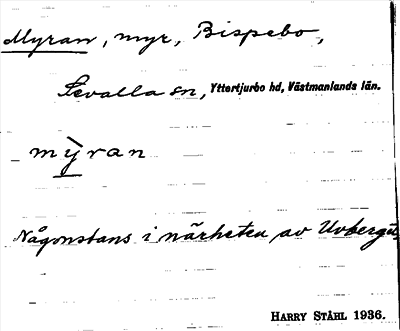 Myran, myr, Bispebo,
Sevalla sn, Yttertjurbo hd, Västmanlands län.
mỳran
Någonstans i närheten av Uvberget
HARRY STÅHL 1936.